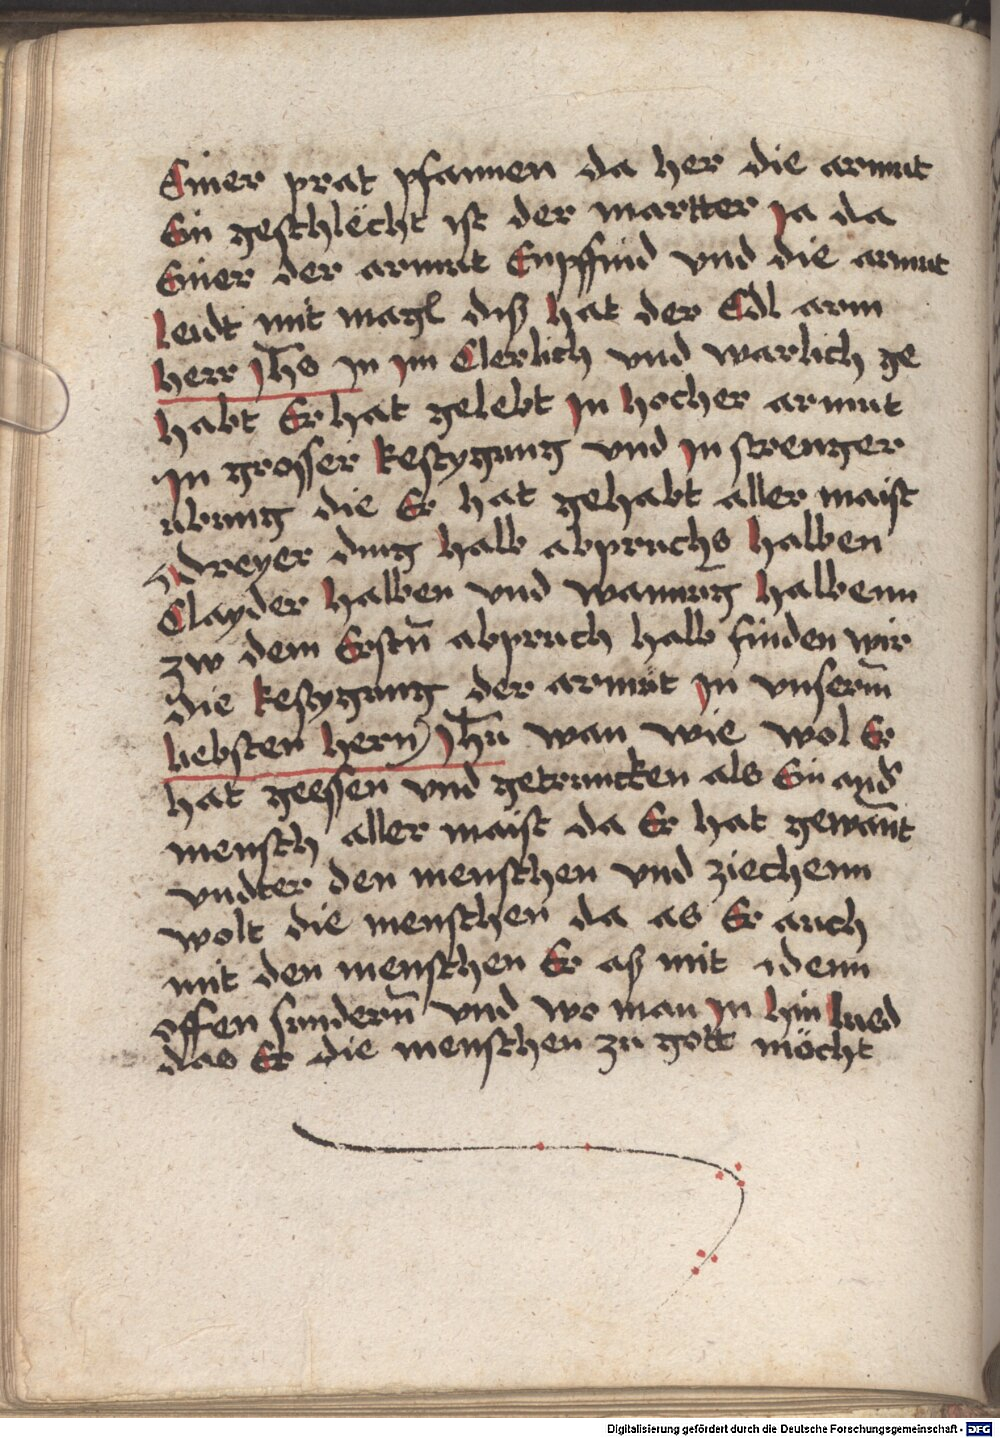 Einer prat pfannen da her die armut
Ein geschlëcht ist der martter ja da
Einer der armut Enpffind vnd die armut
leidt mit magl diß hat der Edl arm
herr Jh̄s Jn Jm Clerlich vnd warlich ge
habt Er hat gelebt Jn hocher armut
Jn grosser kestygung vnd Jn strenger
übung die Er hat gehabt aller maist
dreyer ding halb abpruchs halben
Clayder halben vnd wanung halbenn
zw dem Erstn̄ abpruch halb finden wir
die kestygung der armut Jn vnserm̄
liebsten hern Jh̄u wan wie wol Er
hat geessen vnd getruncken als Ein and̕
mensch aller maist da Er hat gewant
vndter den menschen vnd ziechenn
wolt die menschen da as Er auch
mit den menschen Er aß mit denn
offen sundern̄ vnd wo man Jn hin lued
das Er die menschen zu gott möcht
Digitalisierung gefördert durch die Deutsche Forschungsgemeinschaft - DFG